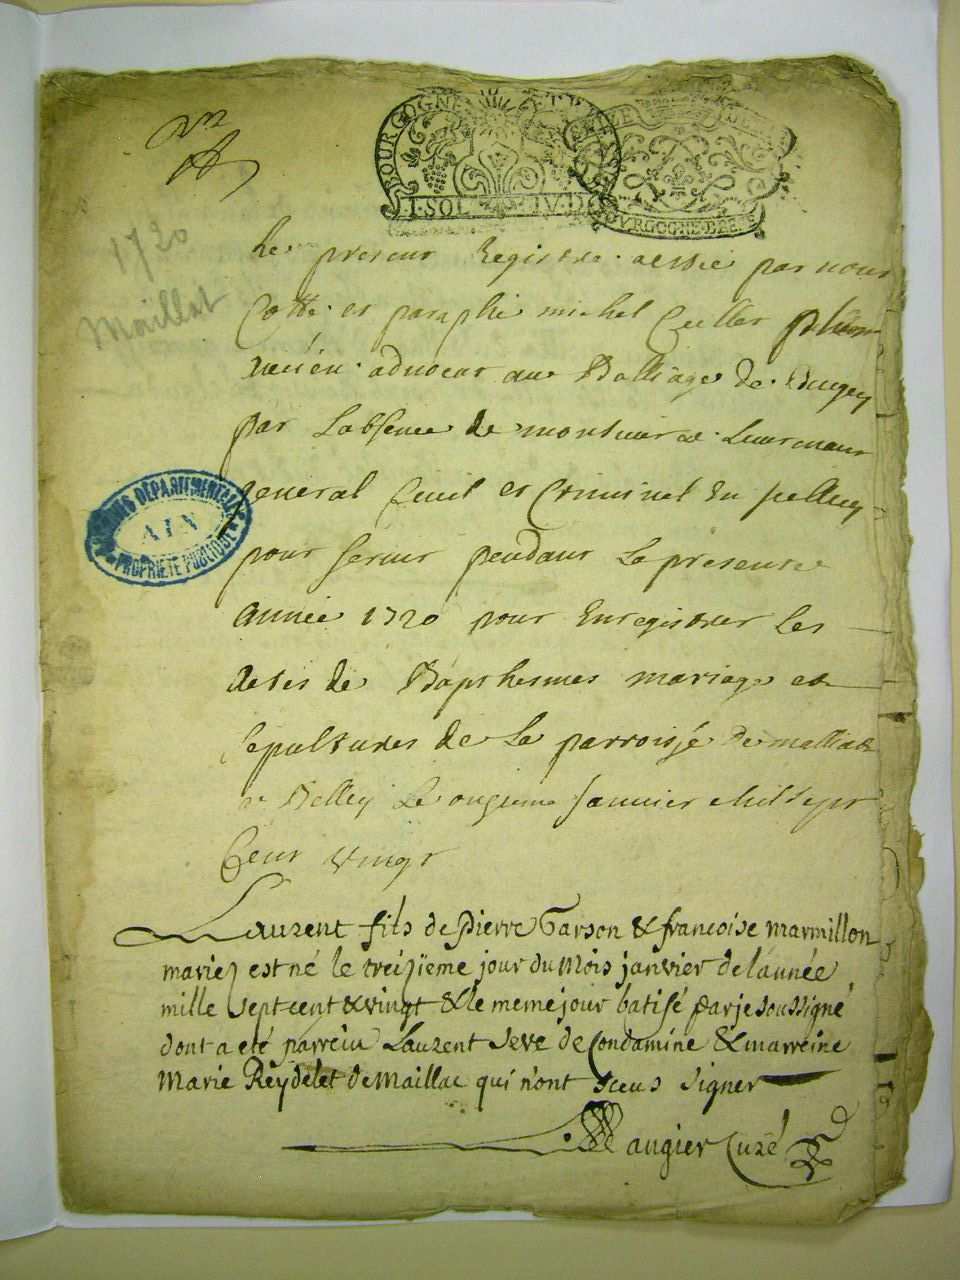 BOURGOGNE ET BRESSE
I·SOL
BOURGOGNE·BRE
1720
Maillat
Le present Registre a esté par nous
Cotté et paraphé michel Cuiller plus
ancien advocat au Balliage de Bugey
par L'absence de monsieur Le Lieutenant
general Civil et Criminel du
pour servir pendant La presente
Année 1720 pour Enregistrer Les
actes de Bapthesmes mariage et
sepultures de La parroisse de malliat
a Belley Le onzieme Janvier Mil sept
Cent vingt
ARCHIVES DÉPARTEMENTALES
AIN
PROPRIÉTÉ PUBLIQUE
Laurent fils de Pierre Garson & francoise marmillon
mariez est né le treizïeme jour du Mois janvier de l'année
mille Sept cent & vingt & le meme jour batisé par je soussigné
dont a eté parrein Laurent Seve de Condamine & marreine
Marie Reydelet de Maillac qui n'ont sceus signer
augier Curé